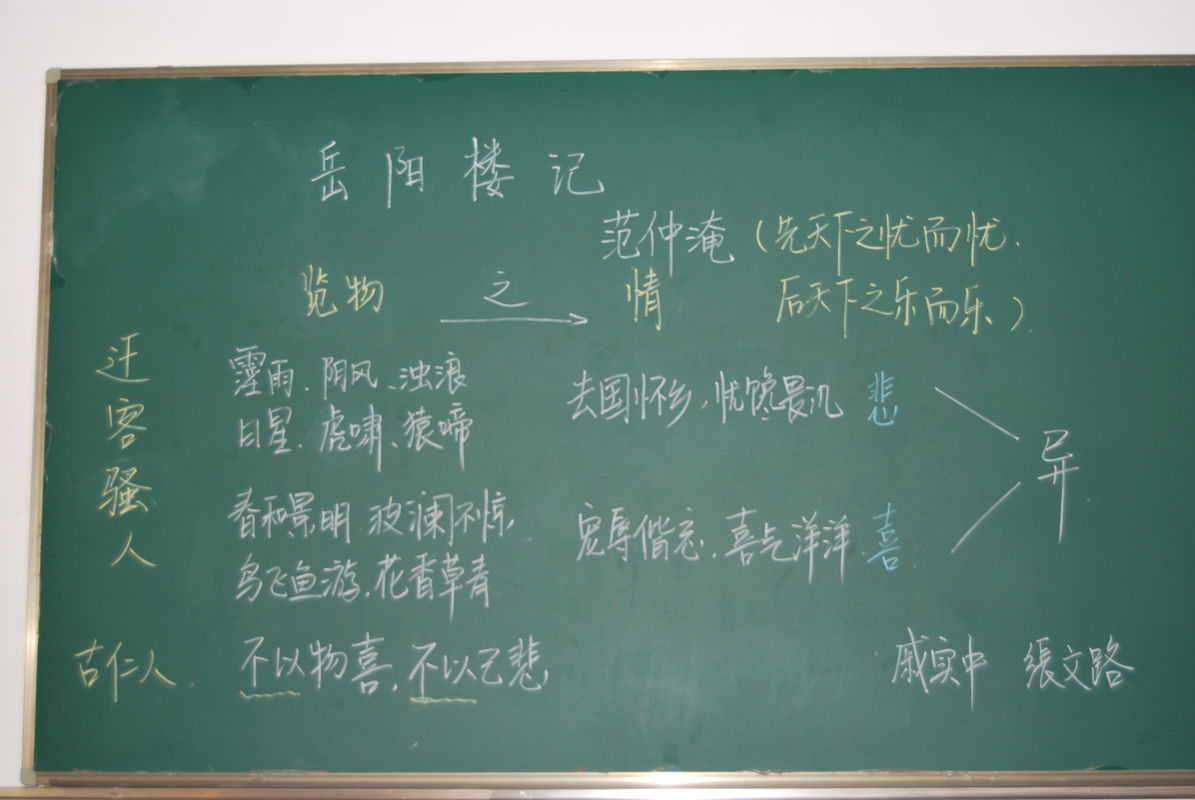 岳阳楼记
范仲淹(先天下之忧而忧.
后天下之乐而乐)
览物 之 情
迁客骚人
霪雨、阴风、浊浪
日星、虎啸、猿啼
去国怀乡,忧馋畏讥 悲
异
春和景明 波澜不惊,
鸟飞鱼游,花香草青
宠辱偕忘、喜气洋洋 喜
古仁人.
不以物喜,不以己悲
戚实中 張文路